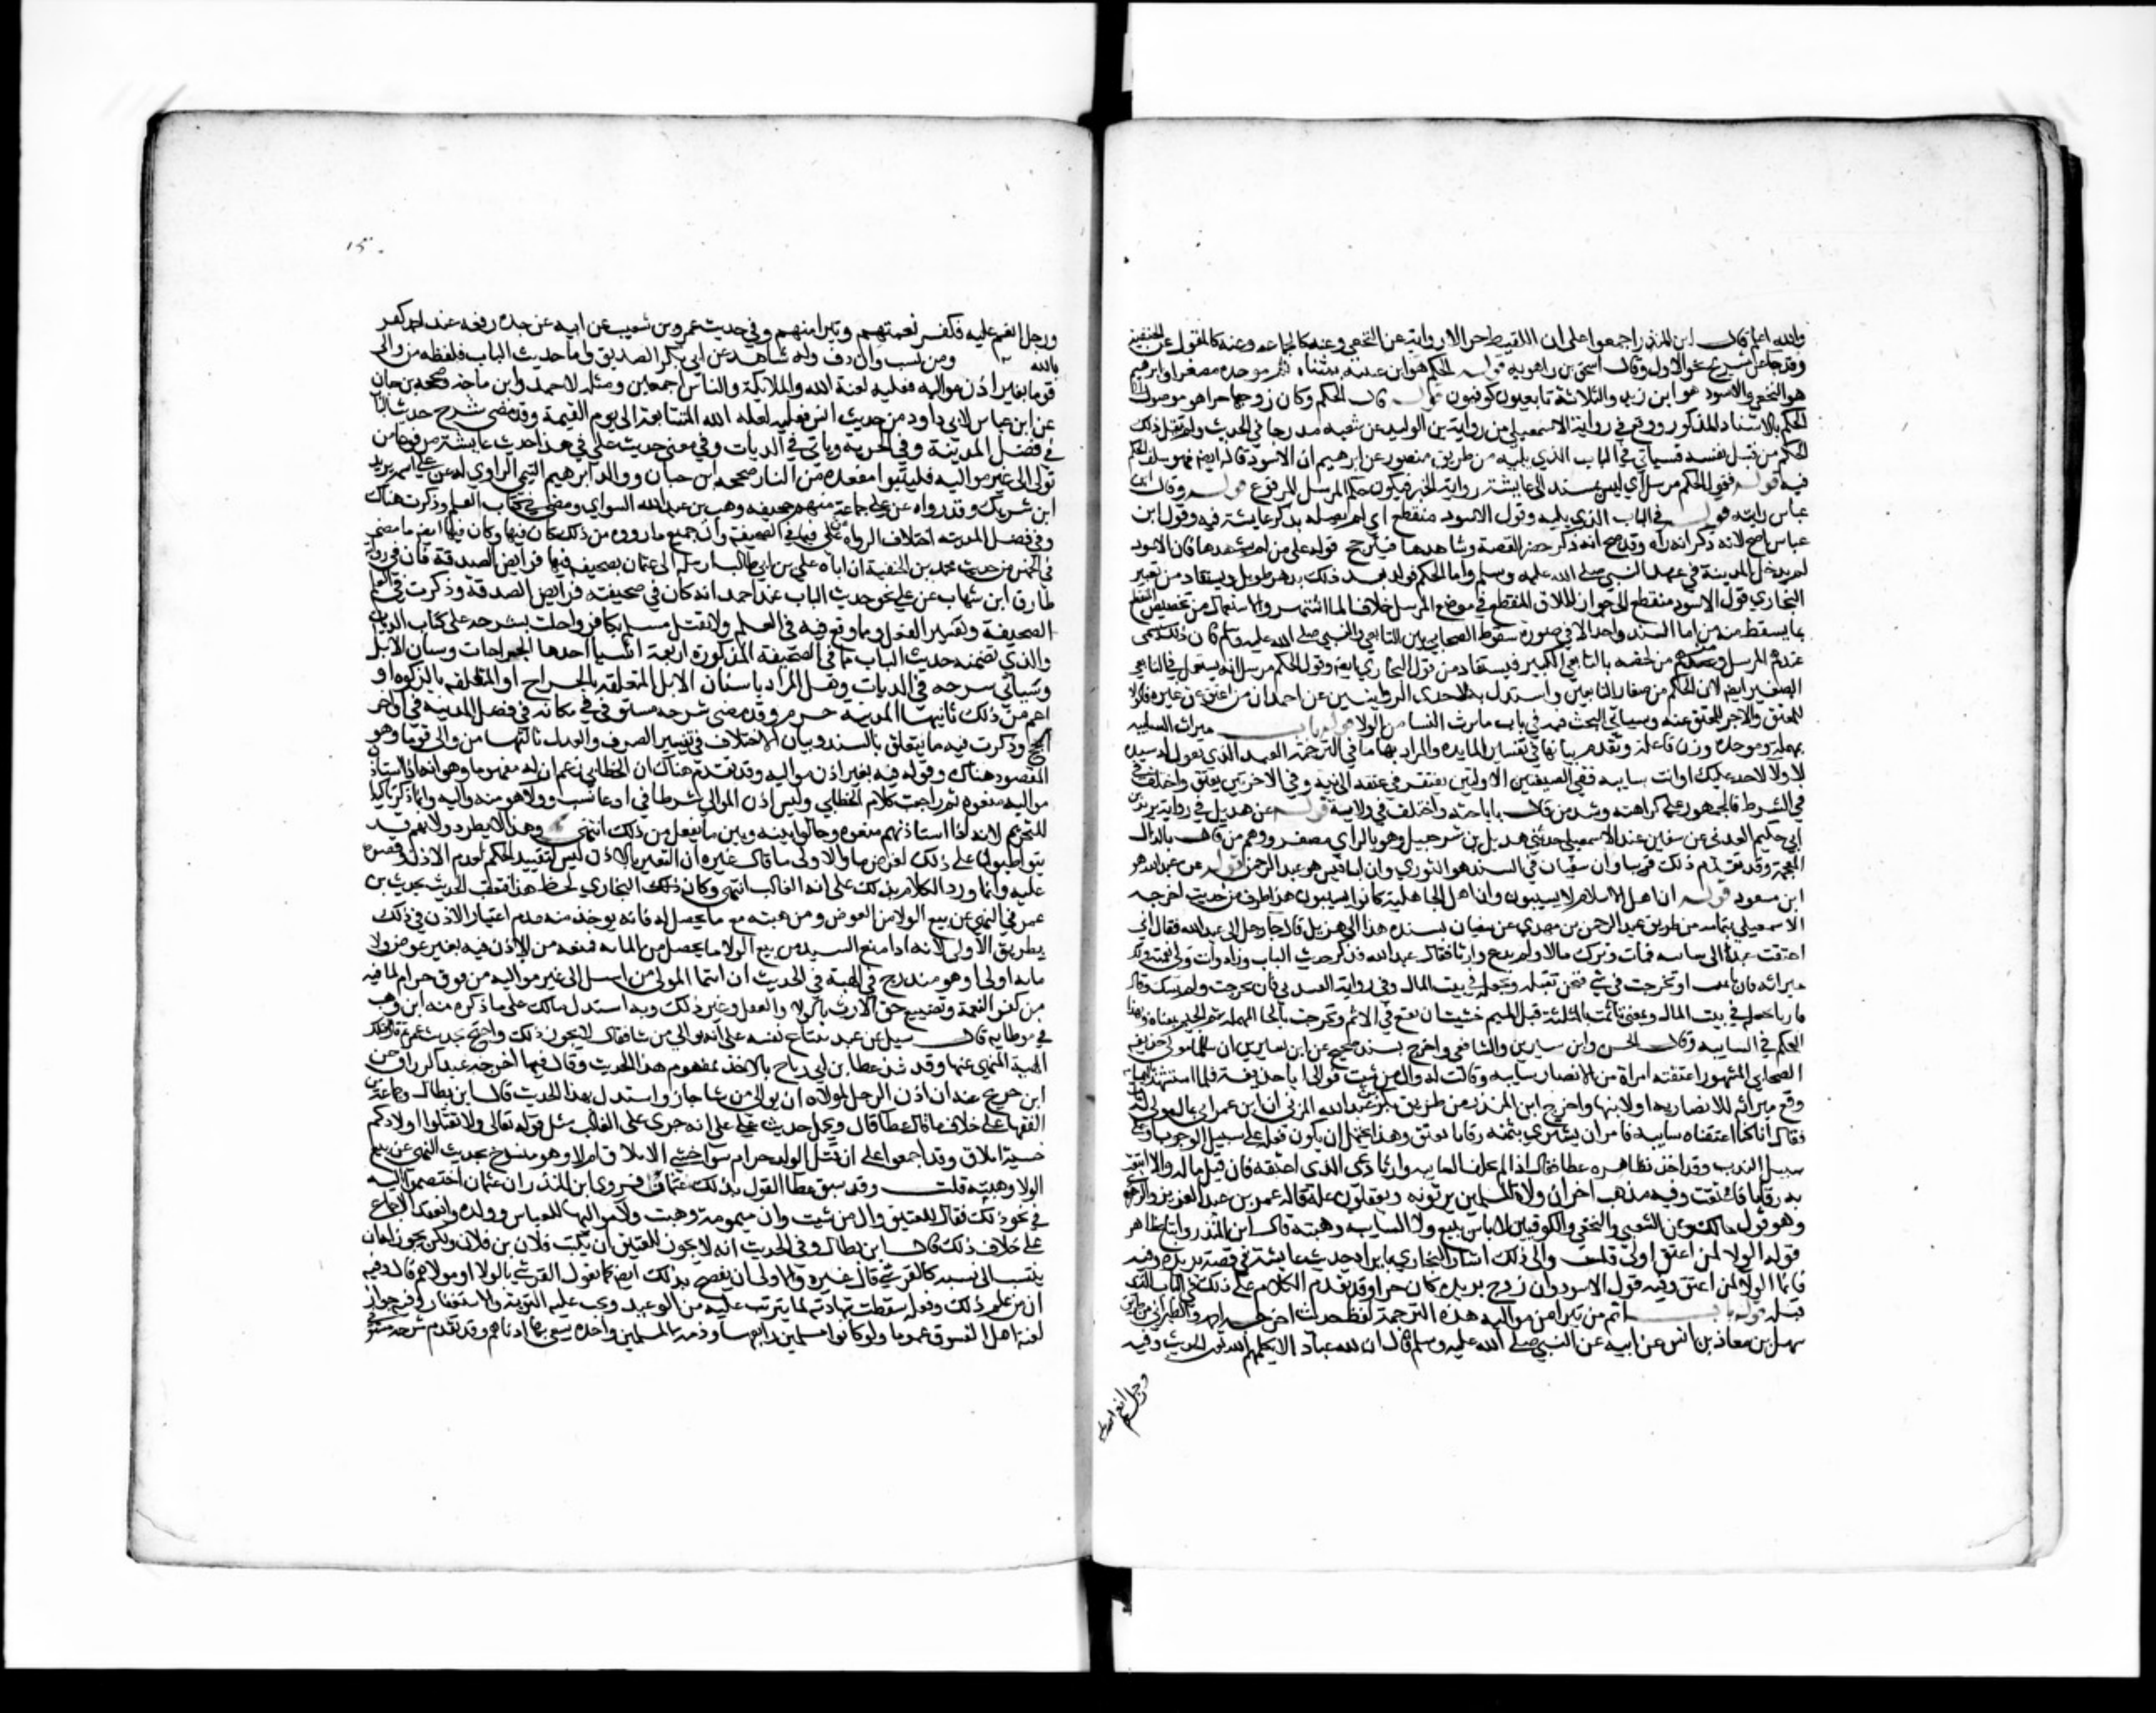 والله اعلم قال ابن المنذر اجمعوا على ان اللقيط حر الا رواية عن النخعي وعنه كالجماعة وعنه كالمنقول عن الحنفية
وقد جا عن شريح نحو الاول وقال اسحق بن راهويه قوله الحكم هو ابن عتيبة بمثناة ثم موحدة مصغر وابراهيم
هو النخعي والاسود هو ابن يزيد والثلاثة تابعيون كوفيون قوله قال الحكم وكان زوجها حرا هو موصول الى
الحكم بالاسناد المذكور ووقع في رواية الاسمعيلي من رواية بن الوليد عن شعبة مدرجا في الحديث ولم يقل ذلك
الحكم من قبل نفسه فسياتي في الباب الذي يليه من طريق منصور عن ابرهيم ان الاسود قاله ايضا فهو سلف الحكم
فيه قوله فقول الحكم مرسل اي ليس بمسند الى عايشة رواية الخبر فيكون حكم المرسل المرفوع قوله وقال ابن
عباس رايته قوله في الباب الذي يليه وقول الاسود منقطع اي لم يصله بذكر عايشة فيه وقول ابن
عباس اصح لانه ذكر انه راه وقد صح انه ذكر حضر القصة وشاهدها فيترجح قوله على من لم يشهدها فان الاسود
لم يدخل المدينة في عهد النبي صلى الله عليه وسلم واما الحكم فولد بعد ذلك بدهر طويل ويستفاد من تعبير
البخاري قول الاسود منقطع الى جواز اطلاق المنقطع في موضع المرسل خلافا لما اشتهر والاستعمال من تخصيص المنقطع
بما يسقط منه من اما السند واحد الا في صورة سقوط الصحابي بين التابعي والنبي صلى الله عليه وسلم فان ذلك يسمى
عندهم المرسل ومنهم من خصه بالتابعي الكبير فيستفاد من قول البخاري ايضا وقول الحكم مرسل انه يستعمل في التابعي
الصغير ايضا لان الحكم من صغار التابعين واستدل به لاحدى الروايتين عن احمد ان من اعتق عن غيره فالولا
للمعتق والاجر للمعتق عنه وسياتي البحث فيه في باب ما يرث النسا من الولا قوله باب ميراث السايبة
بمهملة وموحدة وزن فاعلة وتقدم بيانها في تفسير المايدة والمراد بها ما في الترجمة العبد الذي يقول له سيده
لا ولا لاحد عليك او انت سايبة ففي الصيغتين الاوليين يفتقر في عتقه الى نية وفي الاخريين يعتق واختلف في
في الشرط فالجمهور على كراهته وشذ من قال باباحته واختلف في ولايه قوله عن هذيل في رواية يزيد بن
ابي حكيم العدني عن سفين عند الاسمعيلي حدثني هذيل بن شرحبيل وهو بالزاي مصغر ووهم من قال بالذال
المعجمة وقد تقدم ذلك قريبا وان سفيان في السند هو الثوري وان ابا قيس هو عبد الرحمن قوله عن عبد الله هو
ابن مسعود قوله ان اهل الاسلام لا يسيبون وان اهل الجاهلية كانوا يسيبون هذا طرف من حديث اخرجه
الاسمعيلي بتمامه من طريق عبد الرحمن بن مهدي عن سفيان بسنده هذا الى هزيل قال جا رجل الى عبد الله فقال اني
اعتقت عبدا لي سايبة فمات وترك مالا ولم يدع وارثا فقال عبد الله فذكر حديث الباب وزاد وانت ولي نعمته ولك
ميراثه فان تاثمت او تحرجت في شي فنحن نقبله ونجعله في بيت المال وفي رواية العدني فان تحرجت ولم يشك وقال
فارنا نجعله في بيت المال ومعنى تاثمت بالمثلثة قبل الميم خشيت ان تقع في الاثم وتحرجت بالحا المهملة ثم الجيم بمعناه وبهذا
الحكم في السايبة وقال الحسن وابن سيرين والشافعي واخرج بسند صحيح عن ابن سيرين ان سالما مولى ابي حذيفة
الصحابي المشهور اعتقته امراة من الانصار سايبة وقالت له وال من شيت فوالى ابا حذيفة فلما استشهد باليمامة
وقع ميراثه للانصارية او لابنها واخرج ابن المنذر من طريق بكر بن عبد الله المزني ان ابن عمر اتي بمال مولى له مات
فقال انا كنا اعتقناه سايبة فامر ان يشترى بثمنه رقابا يعتق وهذا يحتمل ان يكون فعله على سبيل الوجوب او على
سبيل الندب وقد اخذ بظاهره عطا فقال اذا لم يخلف السايبة وارثا دعي الذي اعتقه فان قبل ماله والا ابتيعت
به رقابا فاعتقت وفيه مذهب اخر ان ولاه للمسلمين يرثونه ويعقلون عنه قاله عمر بن عبد العزيز والزهري
وهو قول مالك وعن الشعبي والنخعي والكوفيين لا باس ببيع ولا السايبة وهبته قال ابن المنذر واتباع ظاهر
قوله الولا لمن اعتق اولى قلت والى ذلك اشار البخاري بايراد حديث عايشة في قصة بريرة وفيه
فانما الولا لمن اعتق وفيه قول الاسود وان زوج بريرة كان حرا وقد تقدم الكلام على ذلك في الباب الذي
قبله قوله باب اثم من تبرا من مواليه هذه الترجمة لفظ حديث اخرجه احمد والطبراني من طريق
سهل بن معاذ بن انس عن ابيه عن النبي صلى الله عليه وسلم قال ان لله عبادا لا يكلمهم الله تعالى الحديث وفيه
ورجل انعم عليه
ورجل انعم عليه فكفر نعمتهم وتبرا منهم وفي حديث عمرو بن شعيب عن ابيه عن جده رفعه عند احمد كفر
بالله ومن نسب وال دق وله شاهد عن ابي بكر الصديق واما حديث الباب فلفظه من والى
قوما بغير اذن مواليه فعليه لعنة الله والملايكة والناس اجمعين ومثله لاحمد وابن ماجه وصححه بن حبان
عن ابن عباس ولابي داود من حديث انس فعليه لعنه الله المتتابعة الى يوم القيمة وقد مضى شرح حديث الباب
في فضل المدينة وفي الجزية وياتي في الديات وفي معنى حديث علي في هذا حديث عايشة مرفوعا من
تولى الى غير مواليه فليتبوا مقعده من النار صححه ابن حبان ووالد ابرهيم التيمي الراوي له عن علي اسمه يزيد
ابن شريك وقد رواه عن علي جماعة منهم ابو جحيفه وهب بن عبد الله السواي ومضى في كتاب العلم وذكرت هناك
وفي فضل المدينه اختلاف الرواة عن علي فيما في الصحيفة وان جميع ما رووه من ذلك كان فيها وكان فيها ايضا ما مضى
في الخمس من حديث محمد بن الحنفية ان اباه علي بن ابي طالب ارسله الى عثمان بصحيفه فيها فرايض الصدقة فان في رواية
طارق ابن شهاب عن علي نحو حديث الباب عند احمد انه كان في صحيفته فرايض الصدقة وذكرت في العلم
الصحيفة وتفسير العقل وما وقع فيه في العلم ولا يقتل مسلم بكافر واحلت بشرحه على كتاب الديات
والذي تضمنه حديث الباب ما في الصحيفة المذكورة اربعة اشيا احدها الجراحات واسنان الابل
وسياتي شرحه في الديات وهل المراد باسنان الابل المتعلقة بالجراح او المتعلقه بالزكوه او
اعم من ذلك ثانيها المدينه حرم وقد مضى شرحه مستوفى في مكانه في فضل المدينة في اواخر
الحج وذكرت فيه ما يتعلق بالسند وبيان الاختلاف في تفسير الصرف والعدل ثالثها من والى قوما وهو
المقصود هناك وقوله فيه بغير اذن مواليه وقد تقدم هناك ان الخطابي زعم ان له مفهوما وهو انه اذا استاذن
مواليه منعوه ثم راجعت كلام الخطابي وليس اذن الموالي شرطا في ادعا نسب وولا هو منه واليه وانما ذكر تاكيدا
للتحريم لانه اذا استاذنهم منعوه وحالوا بينه وبين ما يفعل من ذلك انتهى وهذا لا يطرد ولانهم قد
يتواطيون على ذلك لغرض ما والاولى ما قال غيره ان التعبير بالاذن ليس لتقييد الحكم بعدم الاذن وقصره
عليه وانما ورد الكلام بذلك على انه الغالب انتهى وكان ذلك البخاري لحظ هذا فعقب الحديث بحديث بن
عمر في النهي عن بيع الولا من العوض ومن هبته مع ما يحصل له فانه يوخذ منه عدم اعتبار الاذن في ذلك
بطريق الاولى لانه اذا منع السيد من بيع الولا ما يحصل من المانه فمنعه من الاذن فيه بغير عوض ولا
مانه اولى او هو مندرج في الهبة في الحديث ان انتما المولى من اسفل الى غير مواليه من فوق حرام لما فيه
من كفر النعمة وتضييع حق الارث بالولا والعقل وغير ذلك وبه استدل مالك على ما ذكره عنه ابن وهب
في موطايه قال سيل عن عبد يبتاع نفسه على انه يوالي من شا فقال لا يجوز ذلك واحتج بحديث بن عمر ثم قال فتلك
الهبة المنهي عنها وقد شذ عطا بن ابي رباح بالاخذ بمفهوم هذا الحديث وقال فيما اخرجه عبد الرزاق عن
ابن جريج عنه ان اذن الرجل لمولاه ان يوالي من شا جاز واستدل بهذا الحديث قال ابن بطال وجماعة من
الفقها على خلاف ما قال عطا قال ويحمل حديث علي على انه جرى على الغالب مثل قوله تعالى ولا تقتلوا اولادكم
خشية املاق وقد اجمعوا على ان قتل الولد حرام سوا خشي الاملاق ام لا وهو منسوخ بحديث النهي عن بيع
الولا وهبته قلت وقد سبق عطا القول بذلك عثمان فروى ابن المنذر ان عثمان اختصموا اليه
في نحو ذلك فقال للعتيق وال من شيت وان ميمونة وهبت ولا مواليها للعباس وولده وانعقد الاجماع
على خلاف ذلك قال ابن بطال وفي الحديث انه لا يجوز للعتيق ان يكتب فلان بن فلان ولكن يجوز له ان
ينتسب الى نسبه كالقرشي قال غيره والاولى ان يفصح بذلك ايضا كما يقول القرشي بالولا او مولاهم قال وفيه
ان من علم ذلك وفعله سقطت شهادته لما يترتب عليه من الوعيد ويجب عليه التوبة والاستغفار وفيه جواز
لعنة اهل الفسوق عموما ولو كانوا مسلمين رابعها وذمة المسلمين واحدة يسعى بها ادناهم وقد تقدم شرحه مستوفى